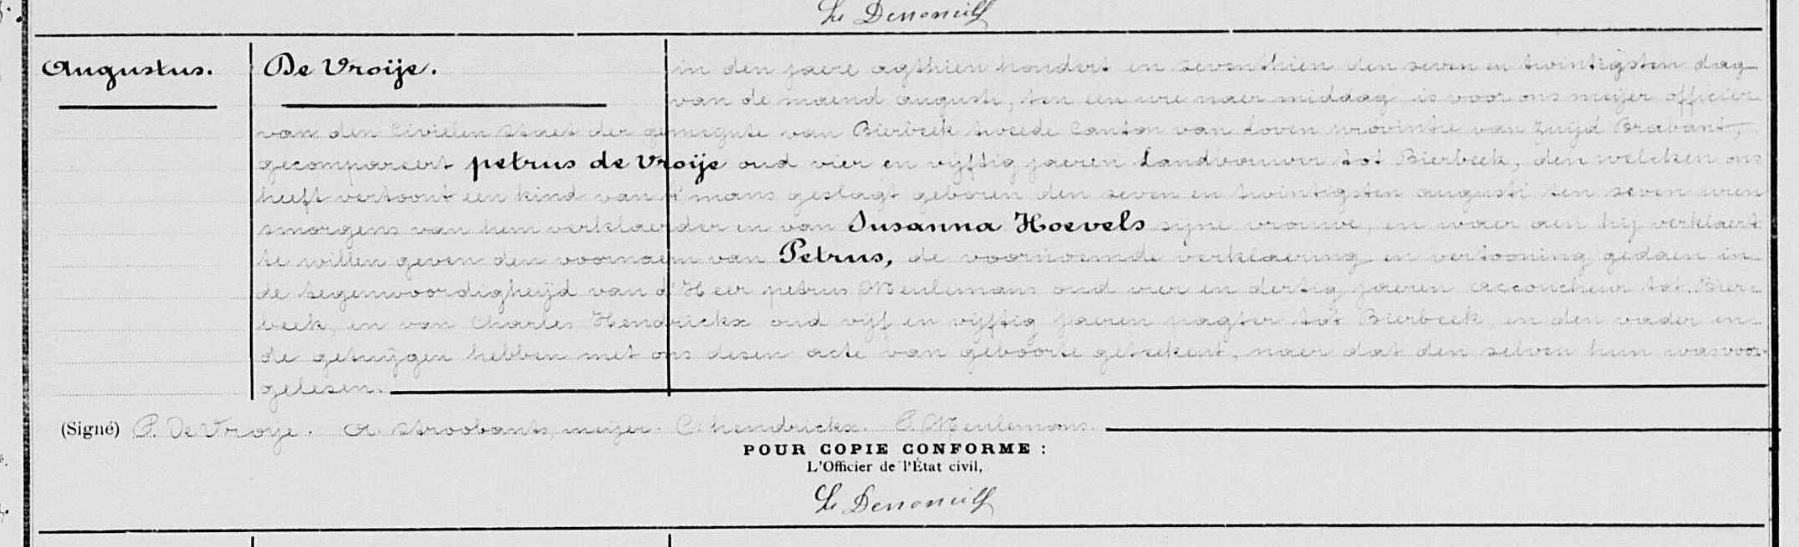 Le Denoneulf
Augustus. De Vroije. in den jaere agthien hondert en seventhien den seven en twintigsten dag
van de maend augusti, ten een ure naer middag is voor ons meijer officier
van den Civielen Staet der gemeynte van Bierbeek tweede Canton van Loven provintie van Zuijd Brabant,
gecompareert petrus de Vroije oud vier en vijftig jaeren Landbouwer tot Bierbeek, den welcken ons
heeft vertoont een kind van 't mans geslagt geboren den seven en twintigsten augusti ten seven uren
smorgens van hem verklaerder en van Susanna Hoevels syne vrouwe, en waer aen hij verklaert
te willen geven den voornaem van Petrus, de voornoemde verklaering en vertooning gedaen in
de tegenwoordigheijd van d'Heer petrus Meulemans oud vier en dertig jaeren accoucheur tot Bier-
beek, en van Charles Hendrickx oud vijf en vijftig jaeren pagter tot Bierbeek, en den vader en
de getuijgen hebben met ons desen acte van geboorte geteekent, naer dat den selven hun was voor
gelesen.
(Signé) P. De Vroye. A. Stroobants, meijer. C. hendrickx. P. Meulemans.
POUR COPIE CONFORME :
L'Officier de l'État civil,